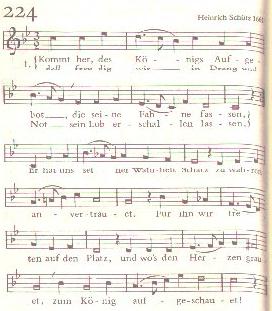 224
Heinrich Schütz 166
1. Kommt her, des Kö - nigs Auf - ge -
daß freu dig wir in Drang und
bot, die sei - ne Fah - ne fas - sen,
Not sein Lob er - schal - len las - sen.
Er hat uns sei ner Wahr - heit Schatz zu wah - ren
an - ver - trau - et. Für ihn wir tre
ten auf den Platz, und wo's den Her - zen grau
et, zum Kö - nig auf - ge - schau - et!